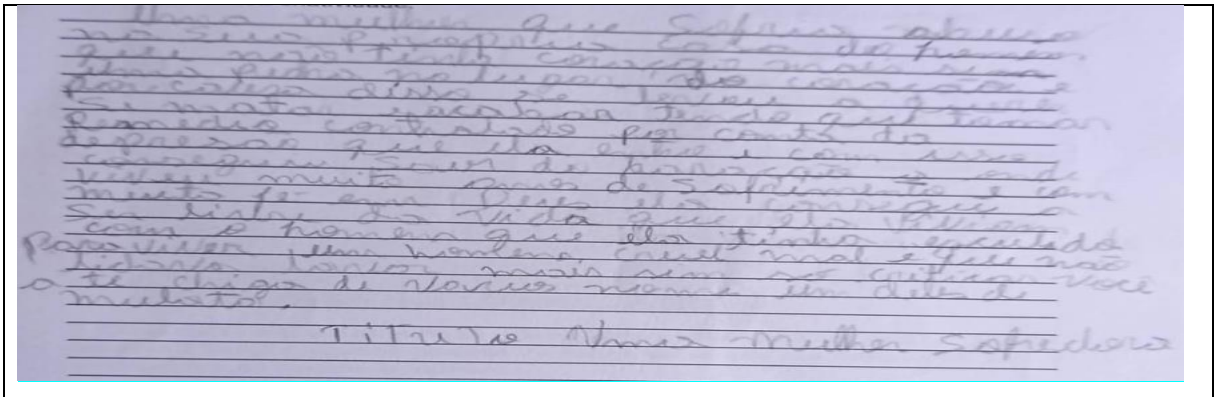 Uma mulher que sofreu abuso
no seu
que não tinha coração mais sim
uma pedra no lugar do coração e
por causa disso ela tentou
se matar tendo que tomar
remedio controlado por conta da
depresão que ela e com isso
conseguiu sair de
viveu muito anos de sofrimento e com
muita fé em Deus ela consegui a
ser livre da vida que ela
com o homem que ela tinha escolhido
para viver um homem cruel mal e que não
mais sim você
a te de varios nome um deles de
mulata.
Titulo Uma mulher sofredora